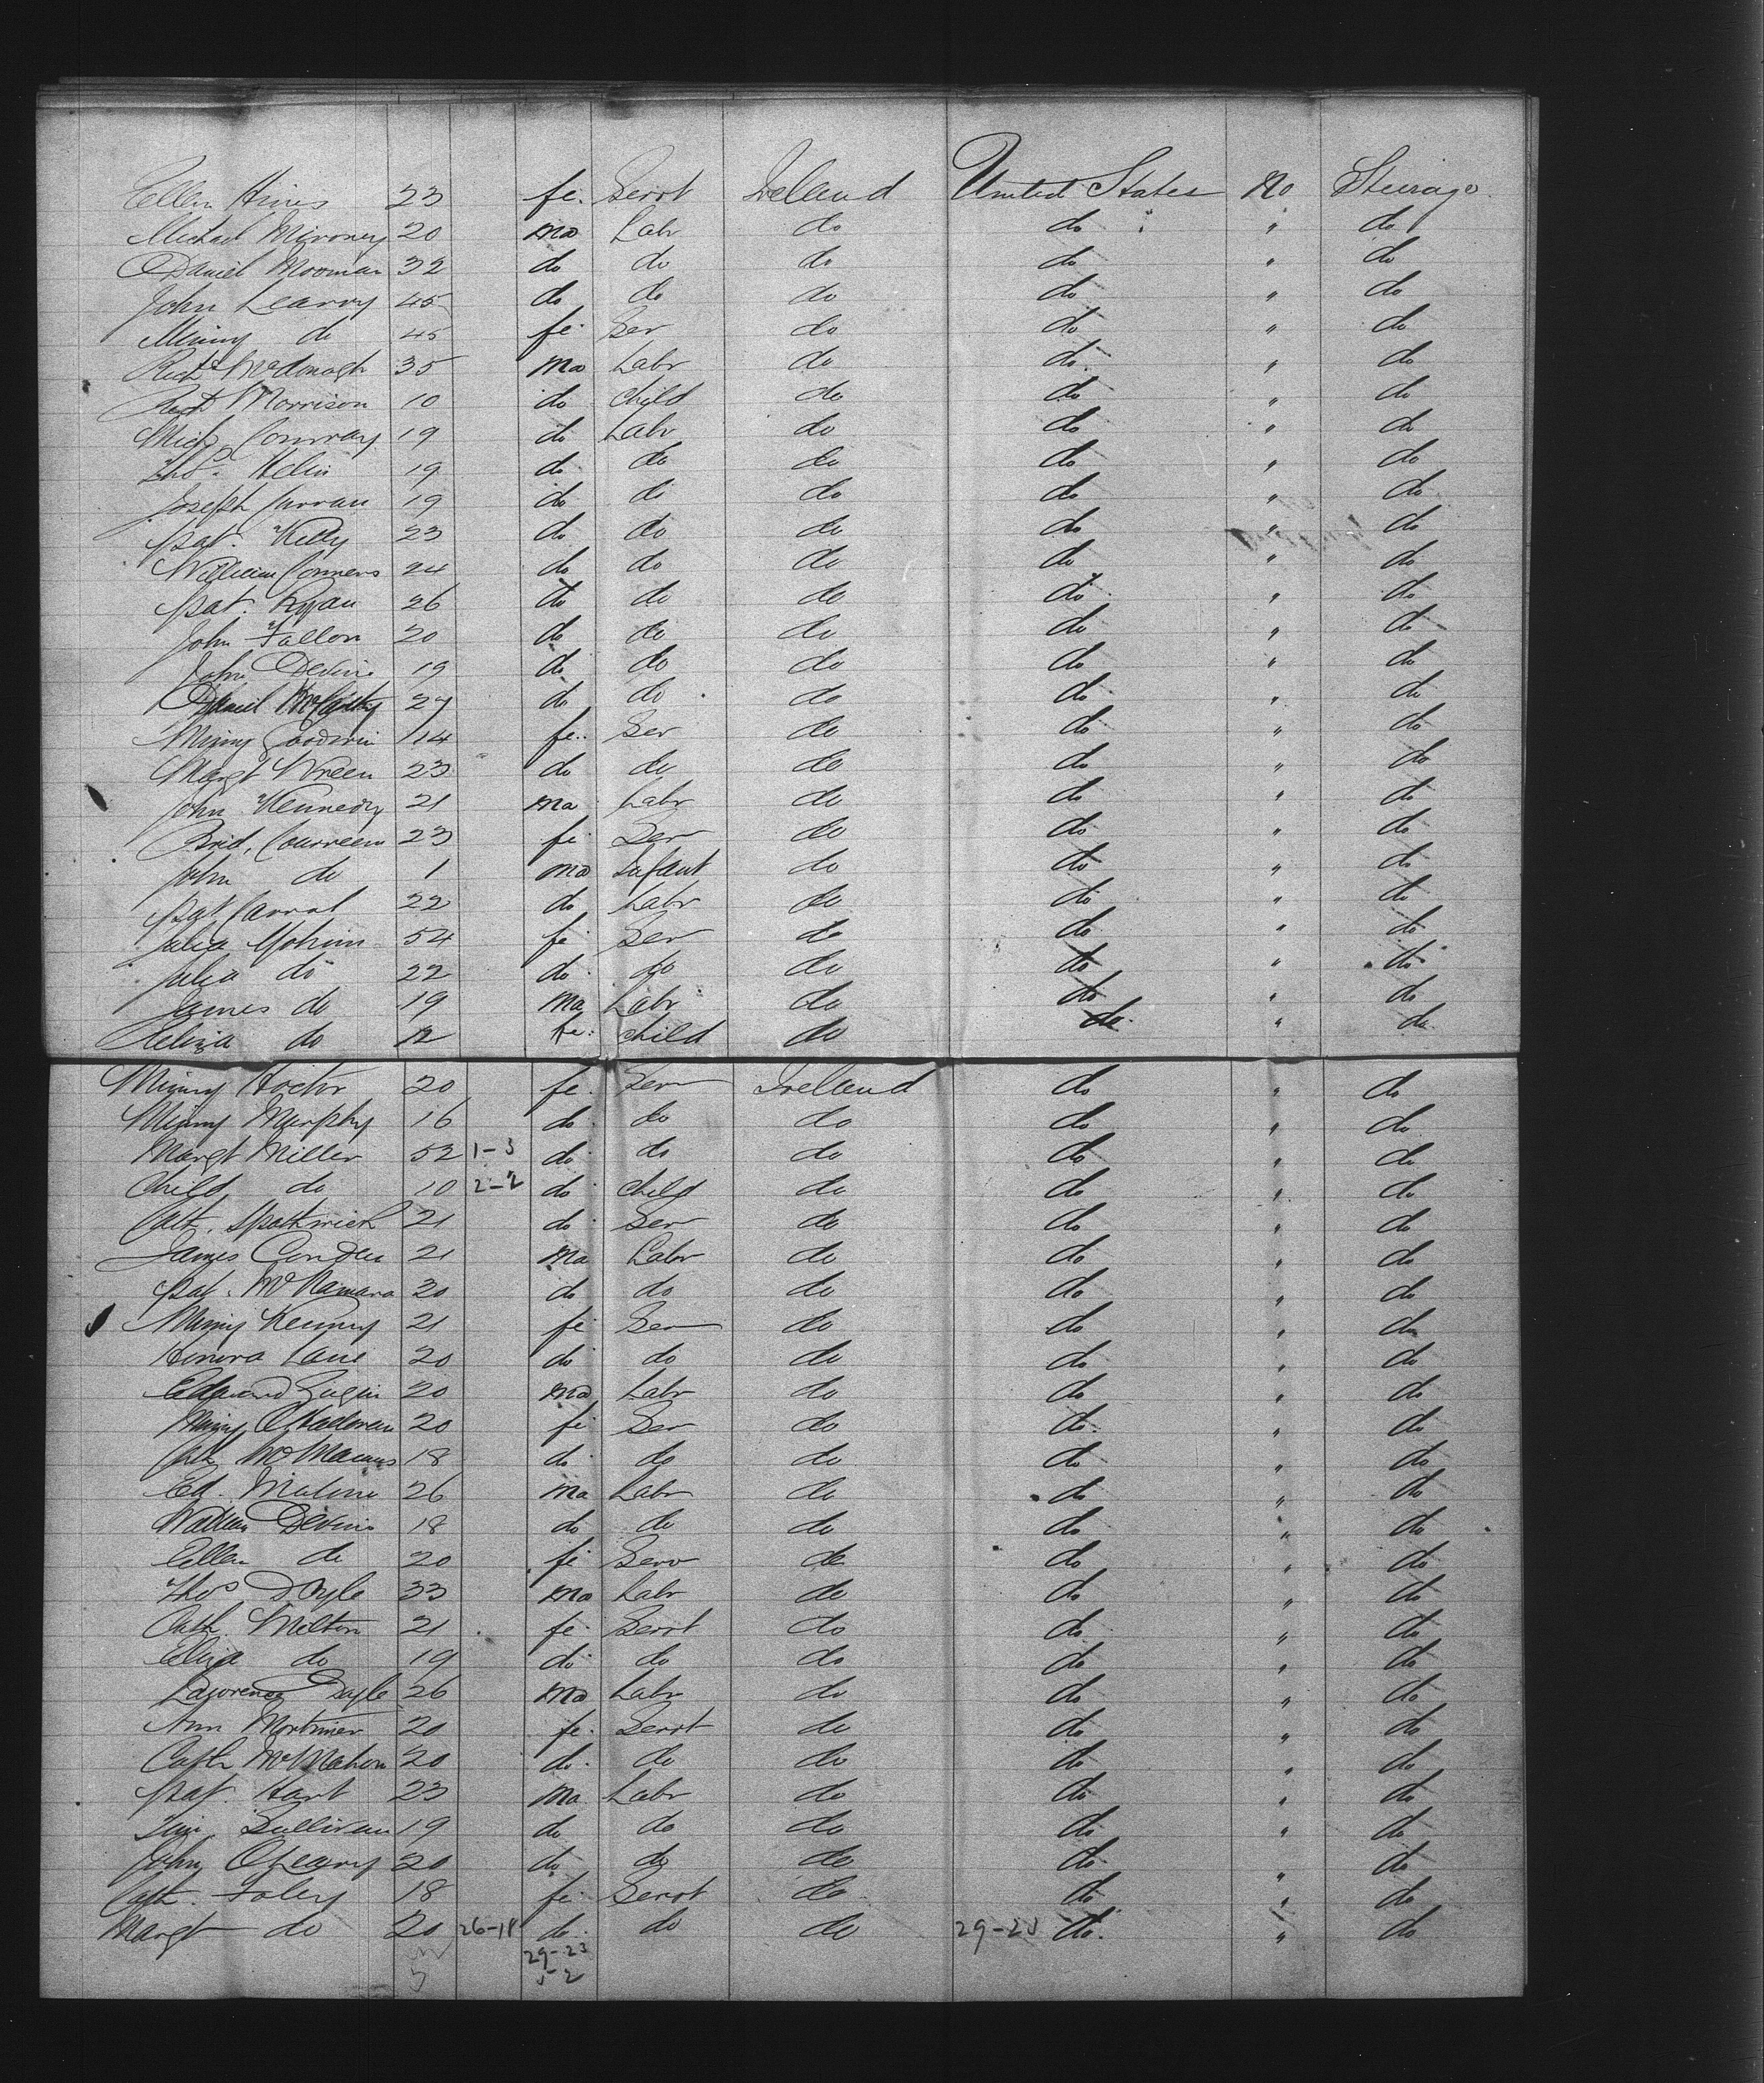 Ellen Hines 23 fe. Servt Ireland United States No Steerage
Michael Mironey 20 ma Labr do do " do
Daniel Mooman 32 do do do do " do
John Learoy 45 do do do do " do
Minny do 45 fe. Ser do do " do
Richd McDonagh 35 ma Labr do do " do
Richd Morrison 10 do child do do " do
Mich Conway 19 do Labr do do " do
Thos. 19 do do do do " do
Joseph Curran 19 do do do do " do
Pat. Kelly 23 do do do do " do
William Conners 24 do do do do " do
Pat. Ryan 26 do do do do " do
John Fallon 20 do do do do " do
John Devine 19 do do do do " do
Daniel McCarthy 27 do do do do " do
Minny Goodwin 14 fe.. Ser do do " do
Margt Wreen 23 do do do do " do
John Kennedy 21 ma Labr do do " do
Brid. Courreen 23 fe Ser do do " do
John do 1 ma Infant do do " do
Pat Carrol 22 do Labr do do " do
Julia 54 fe Ser do do " do
Julia do 22 do do do do " do
James do 19 ma Labr do do " do
do 12 fe. child do do " do
Minny Hoctor 20 fe. Ser Ireland do " do
Minny Murphy 16 do do do do " do
Margt Miller 52 1-3 do do do do " do
Child do 10 2-2 do child do do " do
Cath. 21 do Ser do do " do
James Conden 21 ma Labr do do " do
Pat. McNamara 20 do do do do " do
Minny Kenny 21 fe Ser do do " do
Honora Lane 20 do do do do " do
Edmund 20 ma Labr do do " do
Minny 20 fe Ser do do " do
Cath McManus 18 do do do do " do
Ed. Malone 26 ma Labr do do " do
William Devine 18 do do do do " do
Ellen do 20 fe Serv do do " do
Thos Doyle 33 ma Labr do do " do
Cath. Milton 21 fe Servt do do " do
Eliza do 19 do do do do " do
Lawrence Doyle 26 ma Labr do do " do
Ann Mortimer 20 fe. Servt do do " do
Cath McMahon 20 do. do do do " do
Pat. Hart 23 ma Labr do do " do
Tim. Sullivan 19 do do do do " do
John OLeary 20 do do do do " do
Cath. Foley 18 fe Servt do do " do
Margt do 20 26-18 do. do do 29-23 do. " do
29-23
5-2